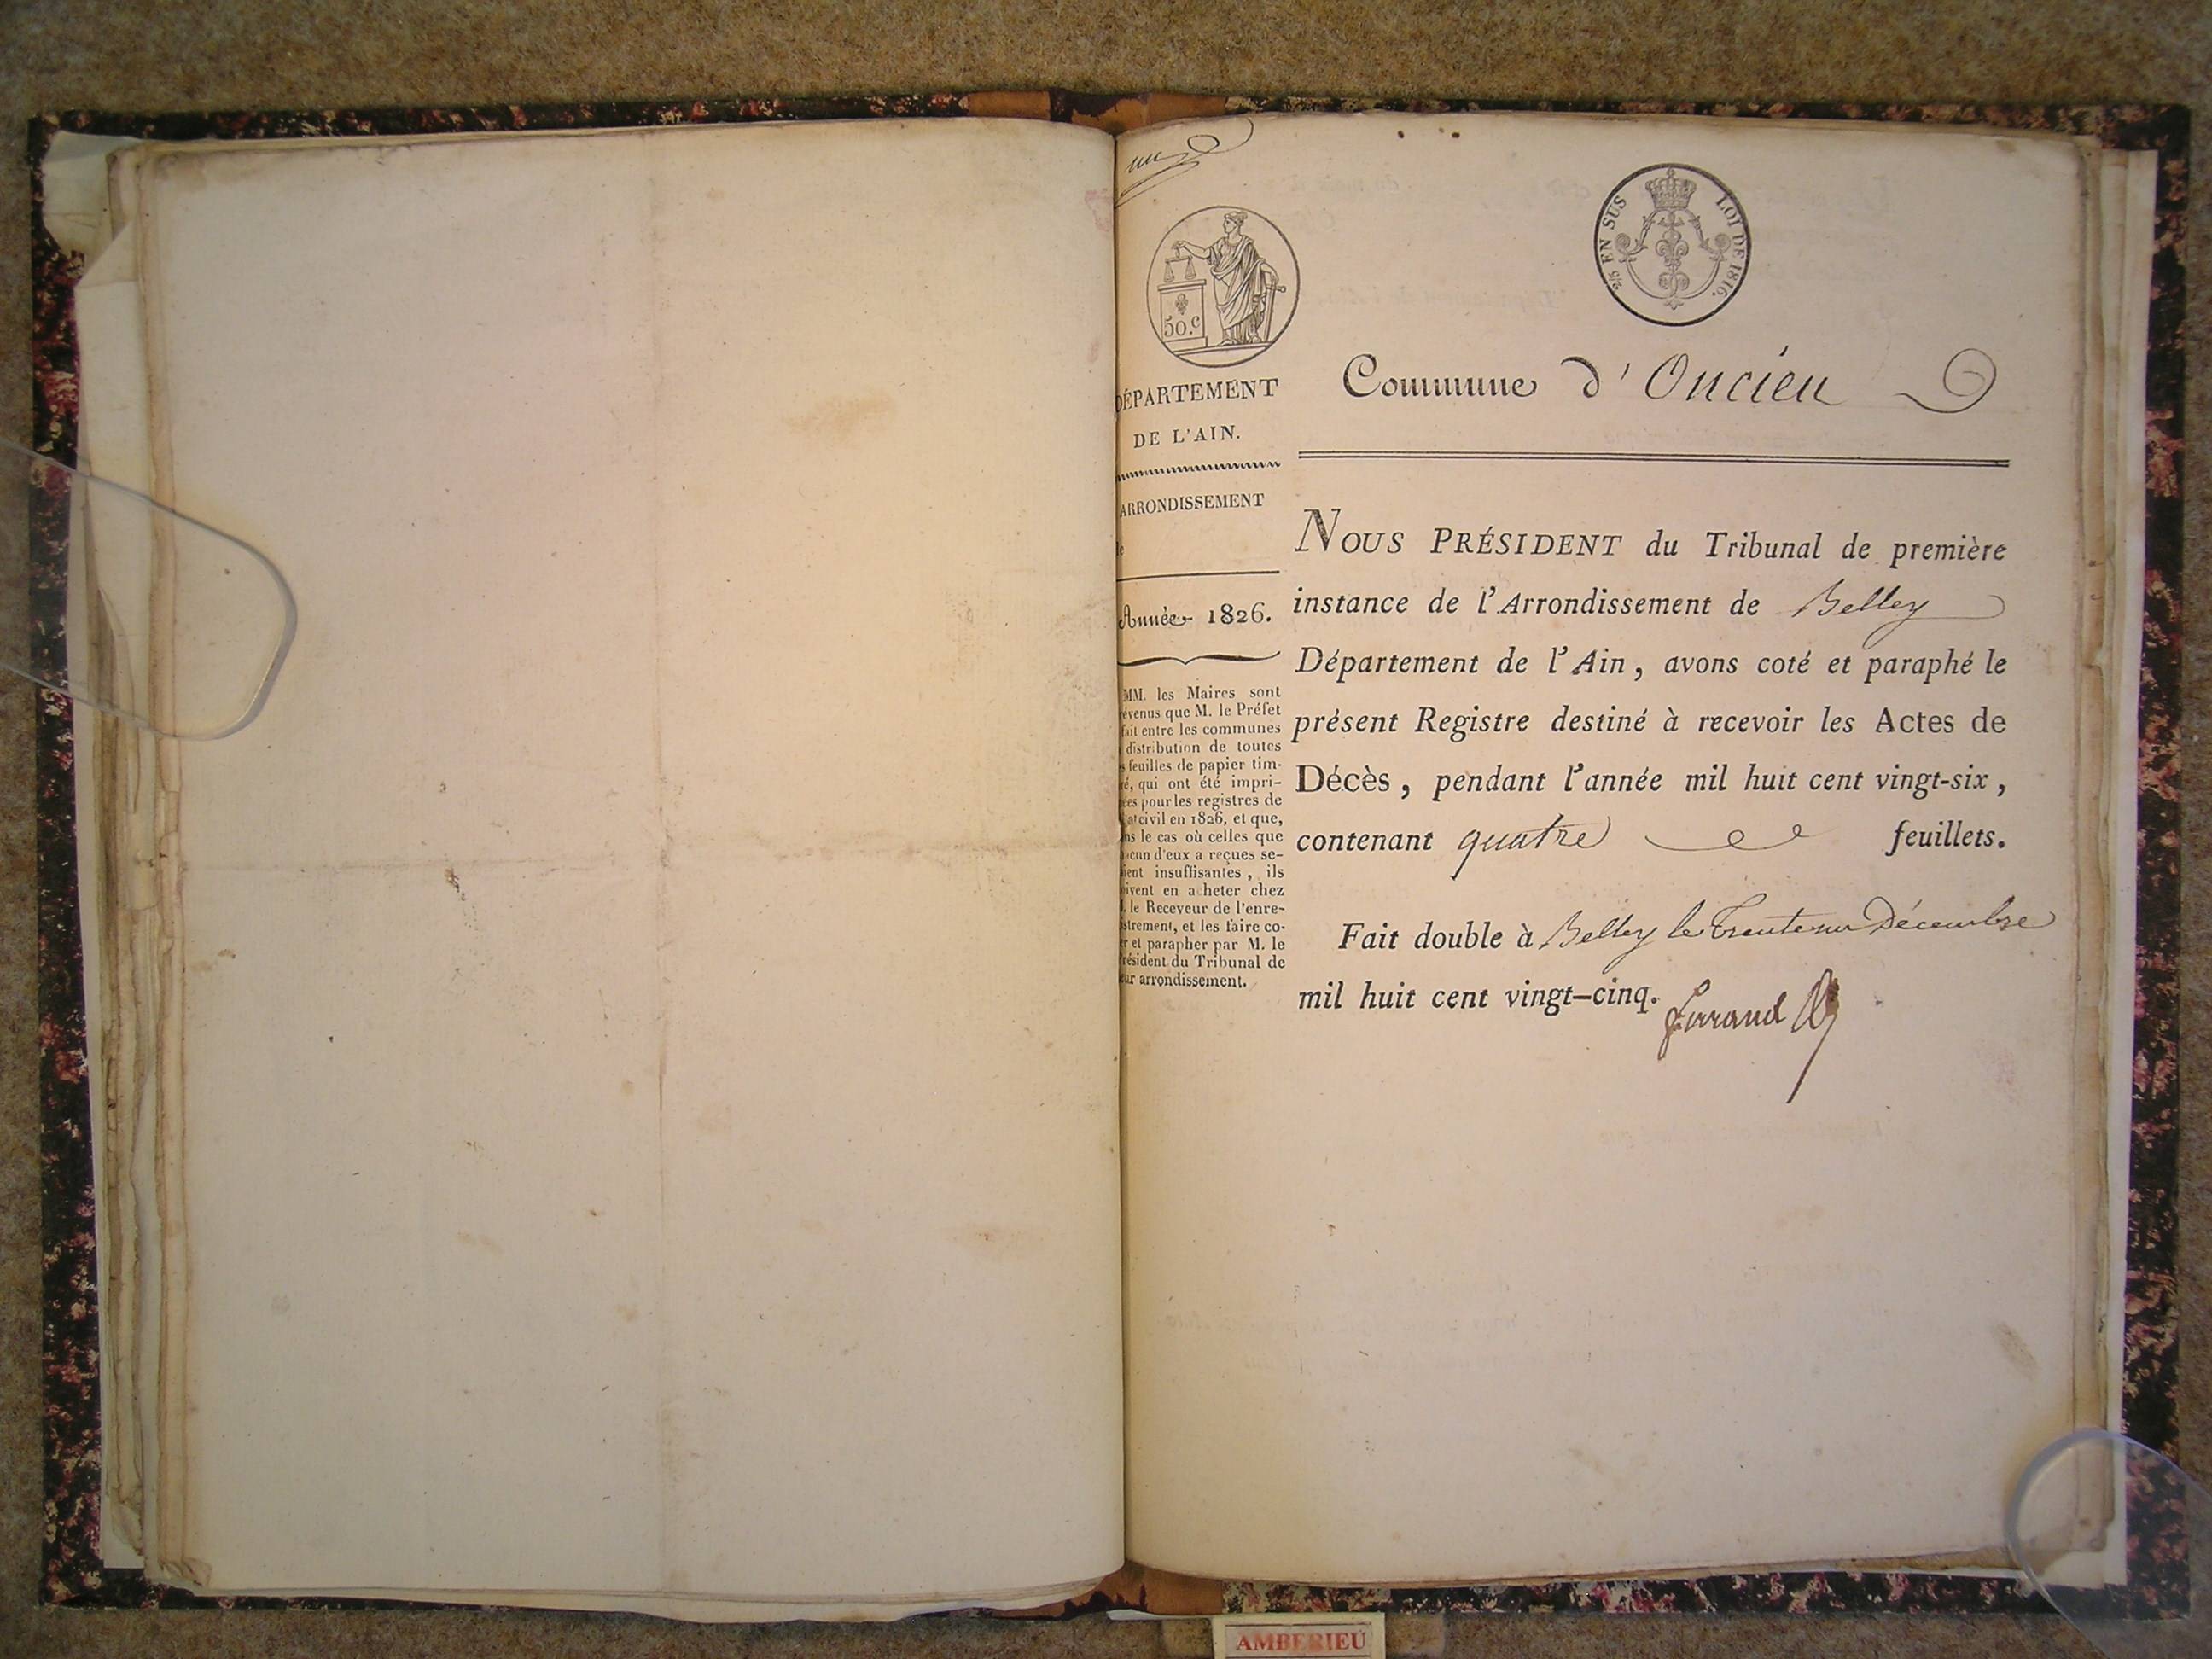 50.c
2/5 EN SUS LOI DE 1816.
DÉPARTEMENT
DE L'AIN.
ARRONDISSEMENT
Année 1826.
MM. les Maires sont
évenus que M. le Préfet
fait entre les communes
distribution de toutes
s feuilles de papier tim-
ré, qui ont été impri-
ées pour les registres de
at civil en 1826, et que,
ns le cas où celles que
acun d'eux a reçues se-
ient insuffisantes, ils
oivent en acheter chez
. le Receveur de l'enre-
istrement, et les faire co-
er et parapher par M. le
résident du Tribunal de
ur arrondissement.
Commune d'Oncieu
NOUS PRÉSIDENT du Tribunal de première
instance de l'Arrondissement de Belley
Département de l'Ain, avons coté et paraphé le
présent Registre destiné à recevoir les Actes de
Décès, pendant l'année mil huit cent vingt-six,
contenant quatre feuillets.
Fait double à Belley le trente un Décembre
mil huit cent vingt-cinq.
AMBERIEU